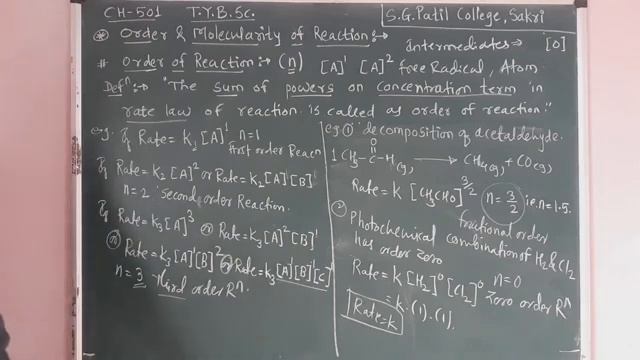 CH-501 T.Y.B.Sc. S.G. Patil College, Sakri
* Order & Molecularity of Reaction:→
Intermediates → [O]
# Order of Reaction:→ (n) [A]¹ [A]² free Radical, Atom
Defⁿ:→ "The sum of powers on concentration term in
rate law of reaction is called as order of reaction."
eg. If Rate = K₁[A]¹ n=1
First order Reacn
If Rate = K₂[A]² or Rate = K₂[A]¹[B]¹
n=2 Second order Reaction.
If Rate = K₃[A]³ or Rate = K₃[A]²[B]¹
or Rate = K₃[A]¹[B]² or Rate = K₃[A]¹[B]¹[C]¹
n = 3 Third order Rⁿ.
eg ① decomposition of acetaldehyde.
O
1 CH₃-C-H(g) → CH₄(g) + CO(g)
Rate = K [CH₃CHO]^3/2 n = 3/2 i.e. n=1.5.
fractional order
② Photochemical combination of H₂ & Cl₂
has order zero n=0
Rate = K [H₂]⁰ [Cl₂]⁰ Zero order Rⁿ
= K·(1)·(1).
Rate = K